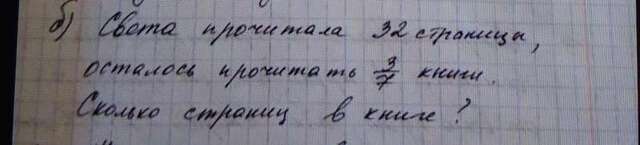 б) Света прочитала 32 страницы,
осталось прочитать 3/7 книги.
Сколько страниц в книге?